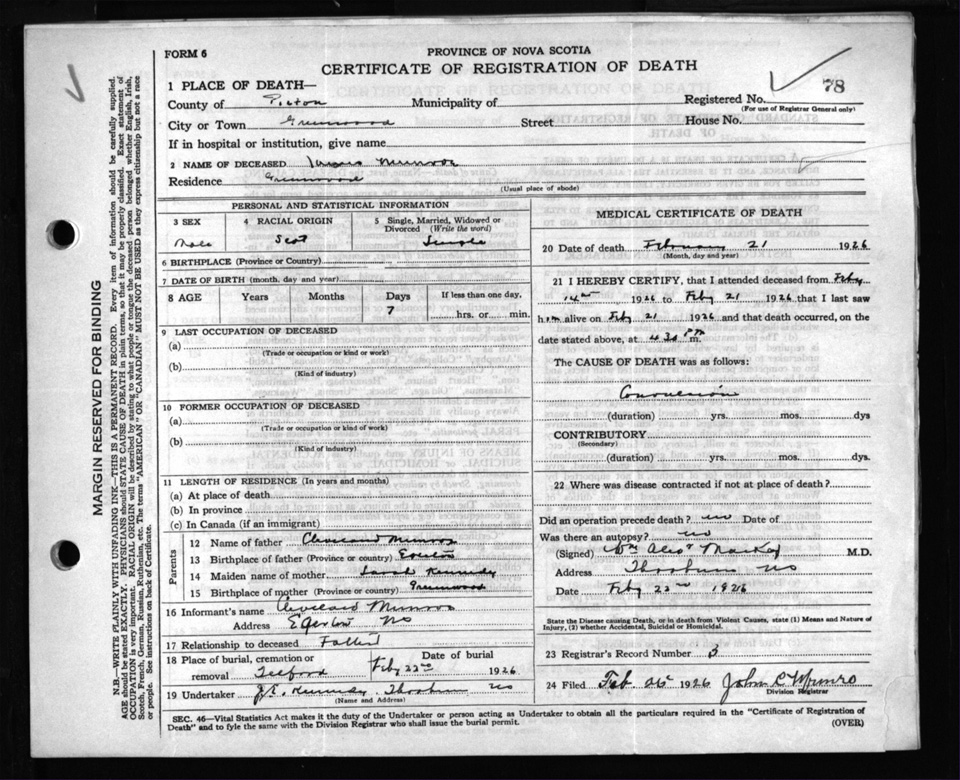 FORM 6
PROVINCE OF NOVA SCOTIA
CERTIFICATE OF REGISTRATION OF DEATH
78
1 PLACE OF DEATH—
County of Pictou Municipality of Registered No.
(For use of Registrar General only)
City or Town Greenwood Street House No.
If in hospital or institution, give name
2 NAME OF DECEASED Munroe
Residence Greenwood
(Usual place of abode)
PERSONAL AND STATISTICAL INFORMATION
3 SEX 4 RACIAL ORIGIN 5 Single, Married, Widowed or Divorced (Write the word)
Male Scot Single
6 BIRTHPLACE (Province or Country)
7 DATE OF BIRTH (month, day and year)
8 AGE Years Months Days If less than one day,
7 hrs. or min.
9 LAST OCCUPATION OF DECEASED
(a)
(Trade or occupation or kind or work)
(b)
(Kind of industry)
10 FORMER OCCUPATION OF DECEASED
(a)
(Trade or occupation or kind of work)
(b)
(Kind of industry)
11 LENGTH OF RESIDENCE (In years and months)
(a) At place of death
(b) In province
(c) In Canada (if an immigrant)
Parents
12 Name of father Cleveland Munroe
13 Birthplace of father (Province or country)
14 Maiden name of mother Sarah Kennedy
15 Birthplace of mother (Province or country) Greenwood
16 Informant's name Cleveland Munroe
Address Egerton NS
17 Relationship to deceased Father
18 Place of burial, cremation or removal Date of burial
Telford Feby 22nd 1926
19 Undertaker Kennedy Thorburn NS
(Name and Address)
MEDICAL CERTIFICATE OF DEATH
20 Date of death February 21 1926
(Month, day and year)
21 I HEREBY CERTIFY, that I attended deceased from Feby
14th 1926 to Feby 21 1926 that I last saw
him alive on Feby 21 1926 and that death occurred, on the
date stated above, at 4.30 P m.
The CAUSE OF DEATH was as follows:
(duration) yrs. mos. dys
CONTRIBUTORY
(Secondary)
(duration) yrs. mos. dys.
22 Where was disease contracted if not at place of death?
Did an operation precede death? no Date of
Was there an autopsy? no
(Signed) Wm MacKay M.D.
Address Thorburn NS
Date Feby 22nd 1926
State the Disease causing Death, or in death from Violent Causes, state (1) Means and Nature of
Injury, (2) whether Accidental, Suicidal or Homicidal.
23 Registrar's Record Number 3
24 Filed Feb 26 1926 John C Munro
Division Registrar
SEC. 46—Vital Statistics Act makes it the duty of the Undertaker or person acting as Undertaker to obtain all the particulars required in the "Certificate of Registration of
Death" and to fyle the same with the Division Registrar who shall issue the burial permit.
(OVER)
MARGIN RESERVED FOR BINDING
N.B.—WRITE PLAINLY WITH UNFADING INK—THIS IS A PERMANENT RECORD. Every item of information should be carefully supplied.
AGE should be stated EXACTLY. PHYSICIANS should STATE CAUSE OF DEATH in plain terms, so that it may be properly classified. Exact statement of
OCCUPATION is very important. RACIAL ORIGIN will be described by stating to what people or tongue the deceased person belonged whether English, Irish,
Scotch, French, German, Russian, Ruthenian, etc. The terms "AMERICAN" OR "CANADIAN" MUST NOT BE USED as they express citizenship but not a race
or people. See instructions on back of Certificate.